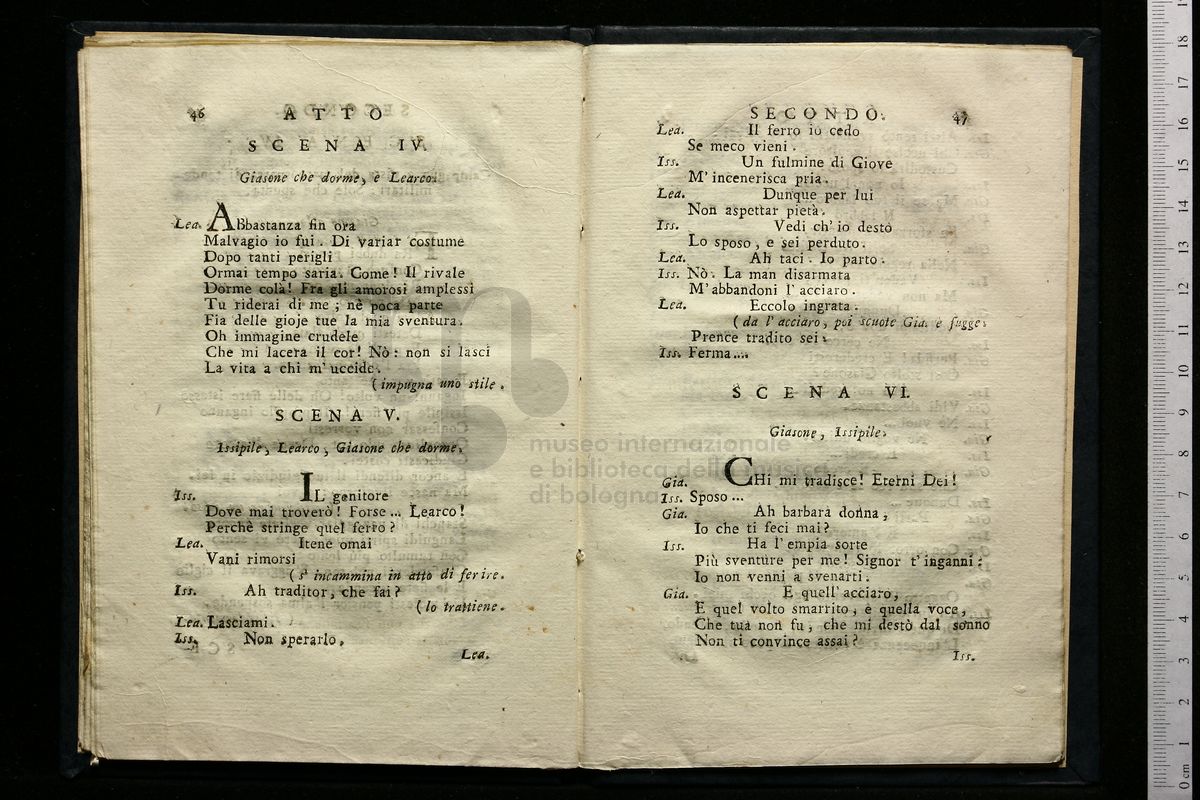 46 ATTO
SCENA IV.
Giasone che dorme, e Learco.
Lea. ABbastanza fin ora
Malvagio io fui. Di variar costume
Dopo tanti perigli
Ormai tempo saria. Come! Il rivale
Dorme colà! Fra gli amorosi amplessi
Tu riderai di me; nè poca parte
Fia delle gioje tue la mia sventura.
Oh immagine crudele
Che mi lacera il cor! Nò: non si lasci
La vita a chi m'uccide.
(impugna uno stile.
SCENA V.
Issipile, Learco, Giasone che dorme.
Iss. IL genitore
Dove mai troverò! Forse... Learco!
Perchè stringe quel ferro?
Lea. Itene omai
Vani rimorsi
(s'incammina in atto di ferire.
Iss. Ah traditor, che fai?
(lo trattiene.
Lea. Lasciami.
Iss. Non sperarlo.
Lea.
SECONDO. 47
Lea. Il ferro io cedo
Se meco vieni.
Iss. Un fulmine di Giove
M'incenerisca pria.
Lea. Dunque per lui
Non aspettar pietà.
Iss. Vedi ch'io desto
Lo sposo, e sei perduto.
Lea. Ah taci. Io parto.
Iss. Nò. La man disarmata
M'abbandoni l'acciaro.
Lea. Eccolo ingrata.
(da l'acciaro, poi scuote Gia. e fugge.
Prence tradito sei.
Iss. Ferma....
SCENA VI.
Giasone, Issipile.
Gia. CHi mi tradisce! Eterni Dei!
Iss. Sposo...
Gia. Ah barbara donna,
Io che ti feci mai?
Iss. Ha l'empia sorte
Più sventure per me! Signor t'inganni:
Io non venni a svenarti.
Gia. E quell'acciaro,
E quel volto smarrito, e quella voce,
Che tua non fu, che mi destò dal sonno
Non ti convince assai?
Iss.
museo internazionale
e biblioteca della musica
di bologna
0 cm 1 2 3 4 5 6 7 8 9 10 11 12 13 14 15 16 17 18